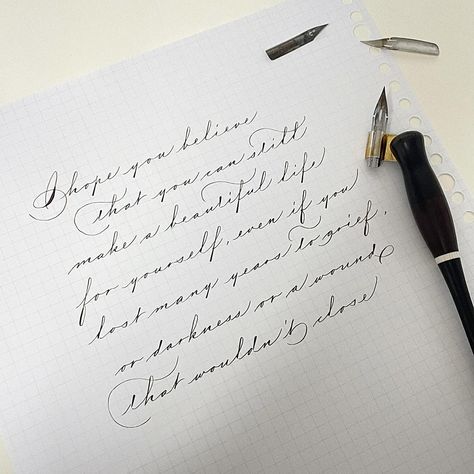 I hope you believe
that you can still
make a beautiful life
for yourself, even if you
lost many years to grief,
or darkness or a wound
that wouldn't close